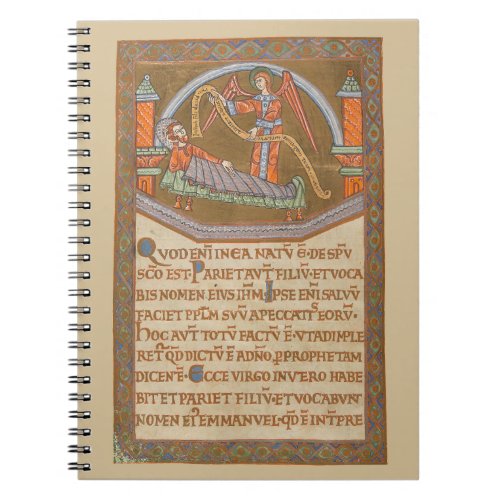 QUOD ENĪ IN EA NATŪ E· DE SPŪ
SC̄O EST. PARIET AUT̄ FILIŪ· ET VOCA
BIS NOMEN EIUS IHM̄ IPSE ENĪ SALVŪ
FACIET PPL̄M SUŪ A PECCATIS EORŪ·
HOC AUT̄ TOTŪ FACTŪ Ē· UT ADIMPLE
RET̄ QD̄ DICTŪ Ē A DN̄O· P̱ PROPHETAM
DICENTĒ· ECCE VIRGO IN UTERO HABE
BIT ET PARIET FILIŪ· ET VOCABUNT
NOMEN EI᾽ EMMANUEL· QD̄ Ē INTPRE